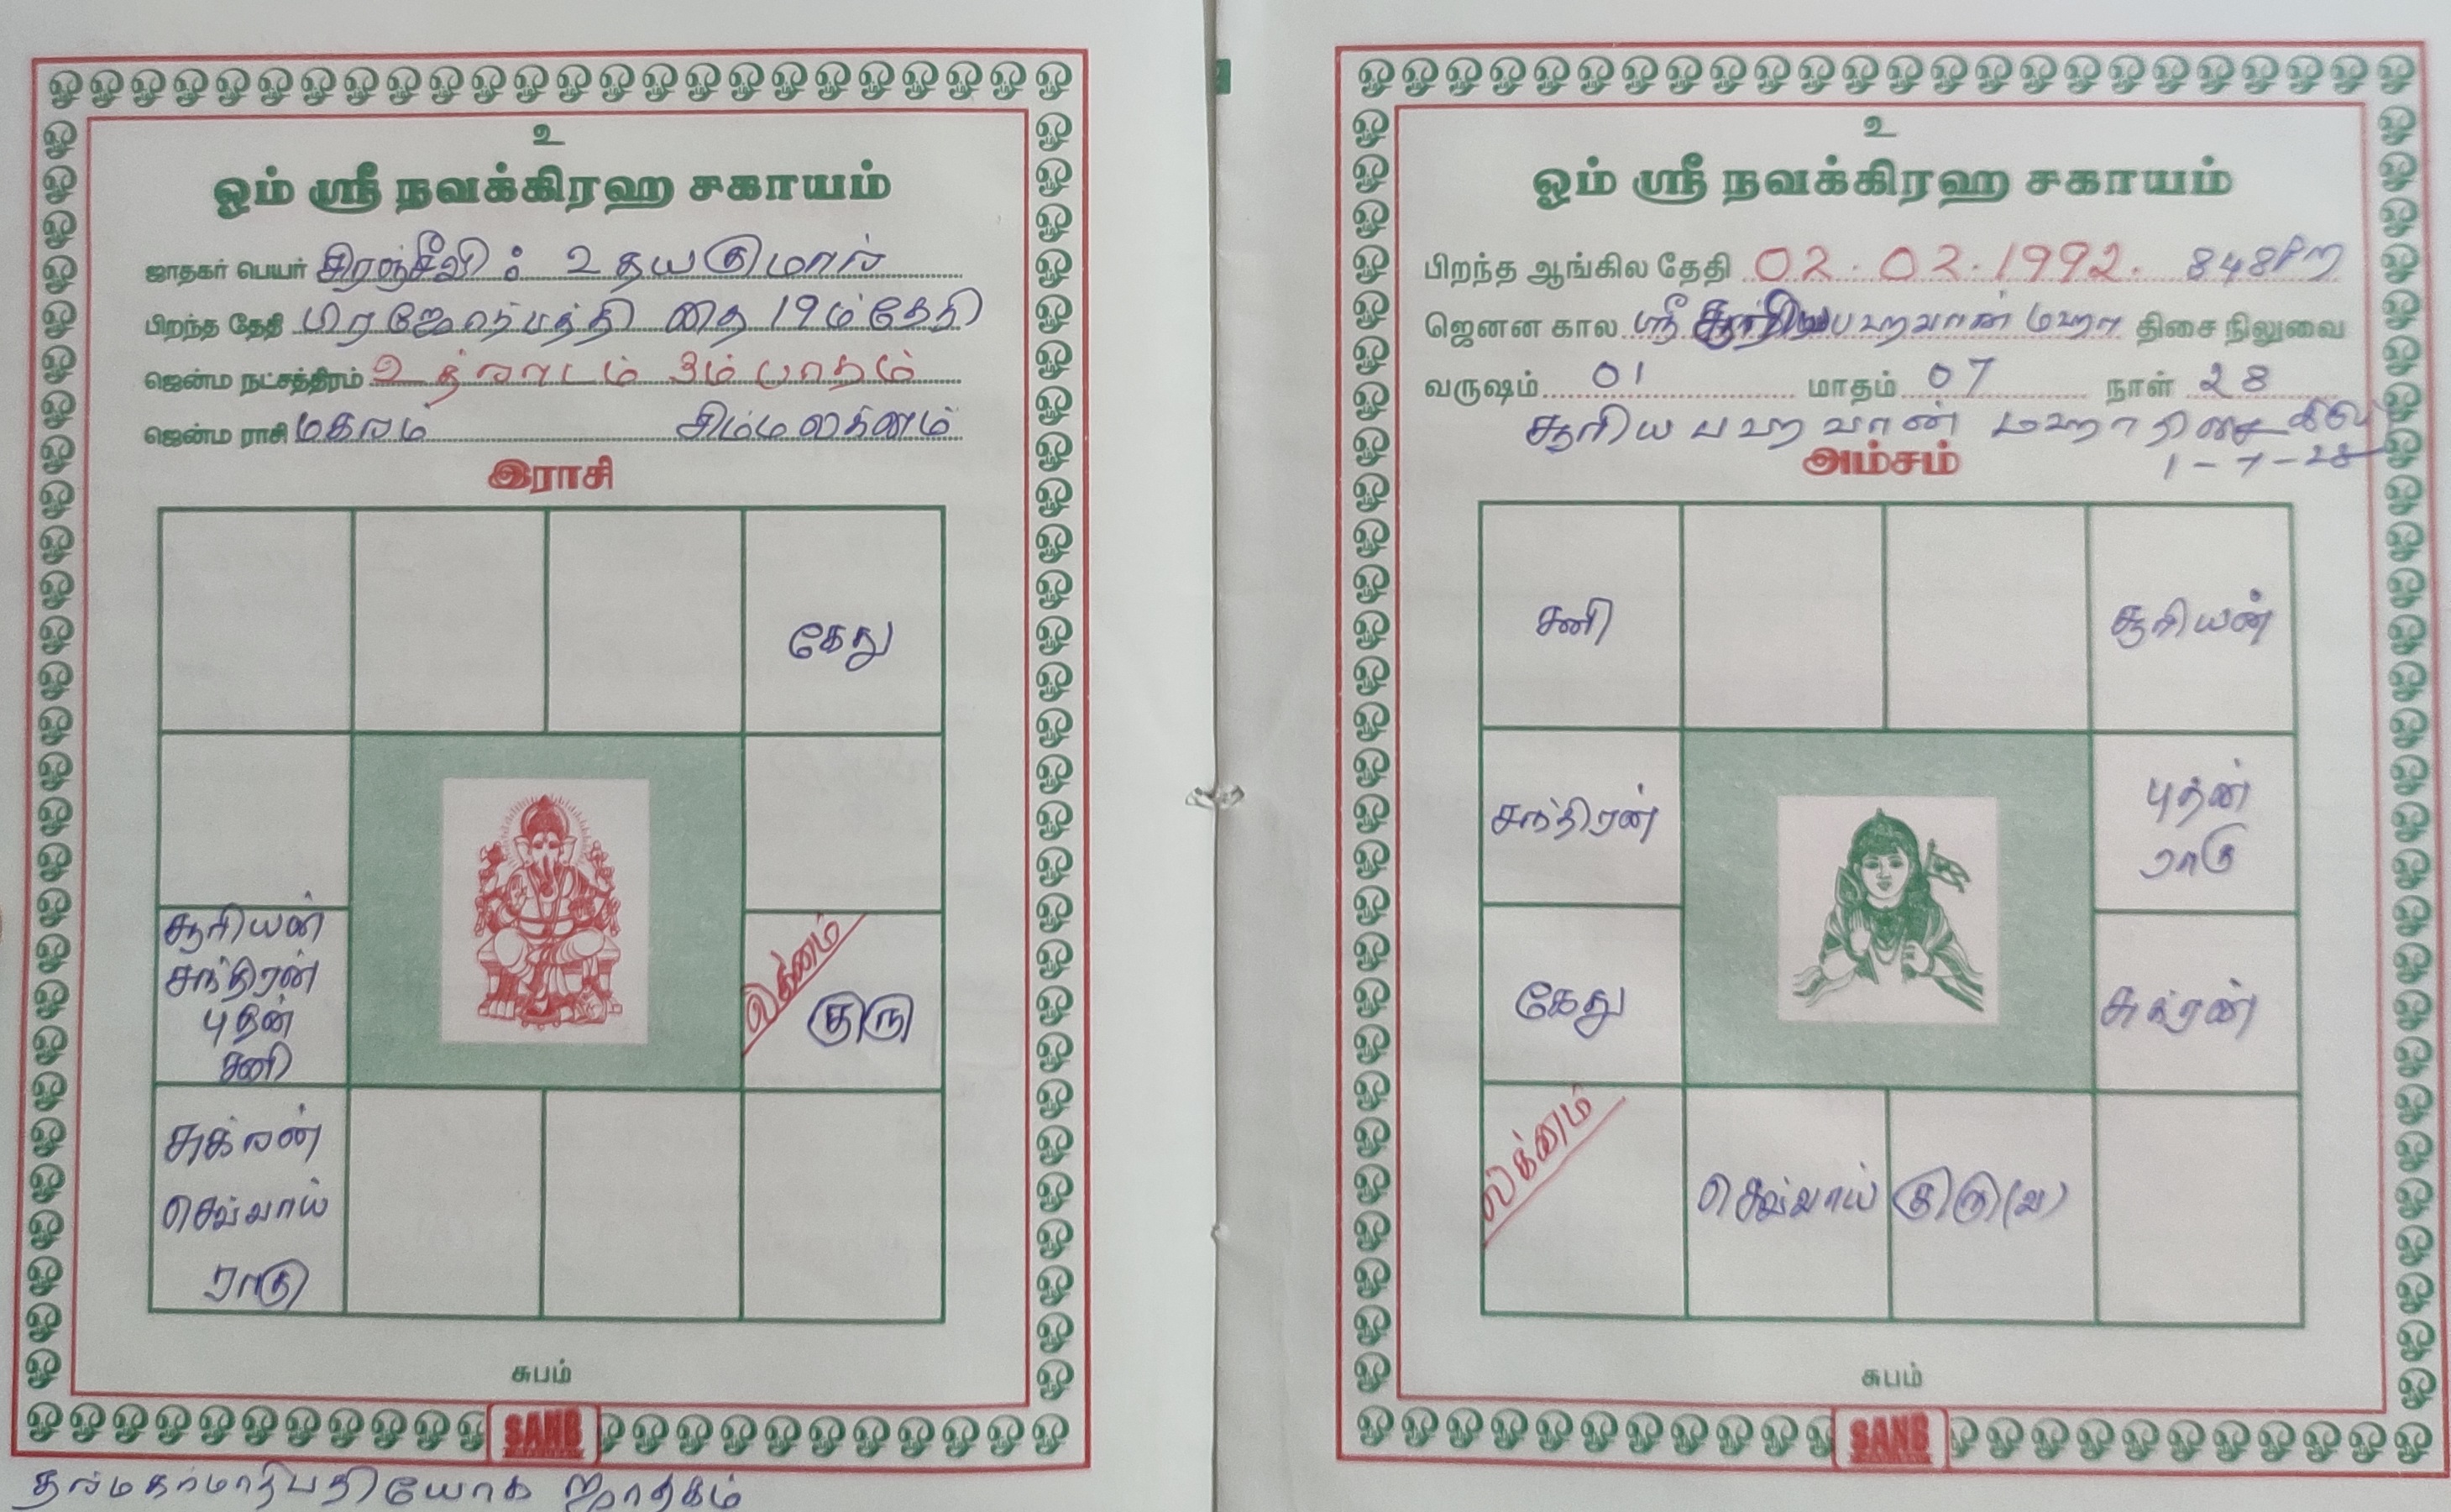 உ
ஓம் ஸ்ரீ நவக்கிரஹ சகாயம்
ஜாதகர் பெயர் சிரஞ்சீவி : உதயகுமார்
பிறந்த தேதி பிரஜோற்பத்தி தை 19ம்தேதி
ஜென்ம நட்சத்திரம் உத்ராடம் 3ம் பாதம்
ஜென்ம ராசி மகரம் சிம்மலக்னம்
இராசி
கேது
சூரியன்
சந்திரன்
புதன்
சனி
லக்னம்
குரு
சுக்ரன்
செவ்வாய்
ராகு
சுபம்
SANB
தர்மகர்மாதிபதியோக ஜாதகம்
உ
ஓம் ஸ்ரீ நவக்கிரஹ சகாயம்
பிறந்த ஆங்கில தேதி 02.02.1992. 848Pm
ஜெனன கால ஸ்ரீ சூரியபஹவான் மஹா திசை நிலுவை
வருஷம் 01 மாதம் 07 நாள் 28
சூரிய பஹவான் மஹாதிசை
1-7-28
அம்சம்
சனி
சூரியன்
சந்திரன்
புதன்
ராகு
கேது
சுக்ரன்
லக்னம்
செவ்வாய்
குரு(வ)
சுபம்
SANB